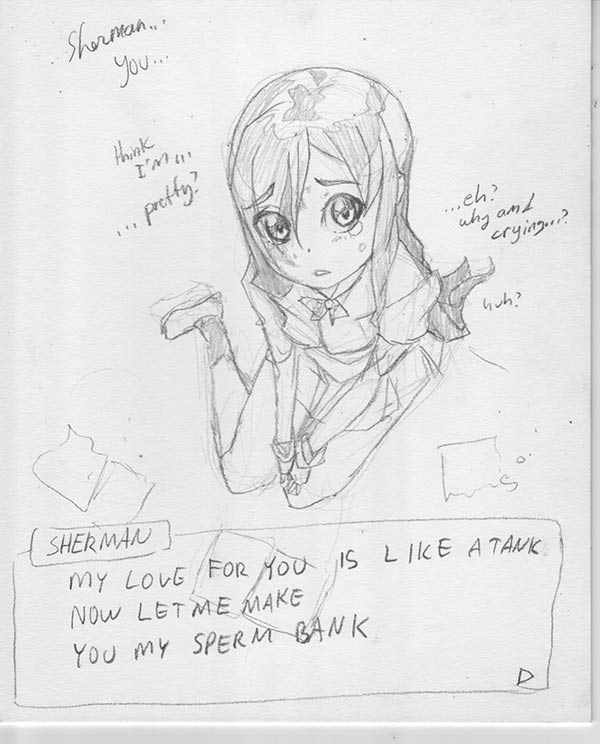 Sherman...
You...
think
I'm...
...pretty?
...eh?
why am I
crying...?
huh?
SHERMAN
MY LOVE FOR YOU IS LIKE A TANK
NOW LET ME MAKE
YOU MY SPERM BANK